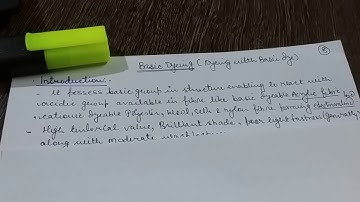 Basic Dyeing (Dyeing with Basic dye)
Introduction:-
- It possess basic group in structure enabling to react with
acidic group available in fibre like basic dyeable Acrylic fibre
cationic dyeable Polyester, Wool, Silk & nylon fibre forming electrovalent
- High tinctorial value, Brilliant shade, poor light fastness (generally)
along with moderate